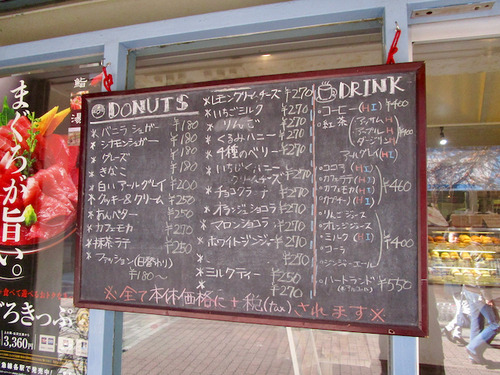 DONUTS
※バニラシュガー ¥180
※シナモンシュガー ¥180
※グレーズ ¥180
※きなこ ¥180
※白いアールグレイ ¥200
※クッキー&クリーム ¥250
※あんバター ¥250
※カフェモカ ¥270
※抹茶ラテ ¥250
※ファッション(日替わり)
¥180〜
※レモンクリームチーズ ¥270
※いちごミルク ¥270
※りんご ¥270
※くるみハニー ¥270
※4種のベリー ¥270
クリームチーズ ¥270
※チョコバナナ ¥270
※オランジュショコラ ¥270
※マロンショコラ ¥270
※ホワイトジンジャー ¥270
※ ¥270
※ミルクティー ¥250
※ ¥270
DRINK
・コーヒー(HI) ¥400
・紅茶
アッサムH
アールグレーH
ダージリンH
アールグレイ(HI)
・ココア(HI)
・カフェラテ(HI)
・カフェモカ(HI)
・カプチーノ(HI)
¥460
・りんごジュース
・オレンジジュース
・ミルク(HI)
・コーラ
・ジンジャーエール
¥400
・ハートランド ¥550
※全て本体価格に+税(tax)されます※
鮨
湯
まぐろが旨い。
ろきっぷ
3,360円